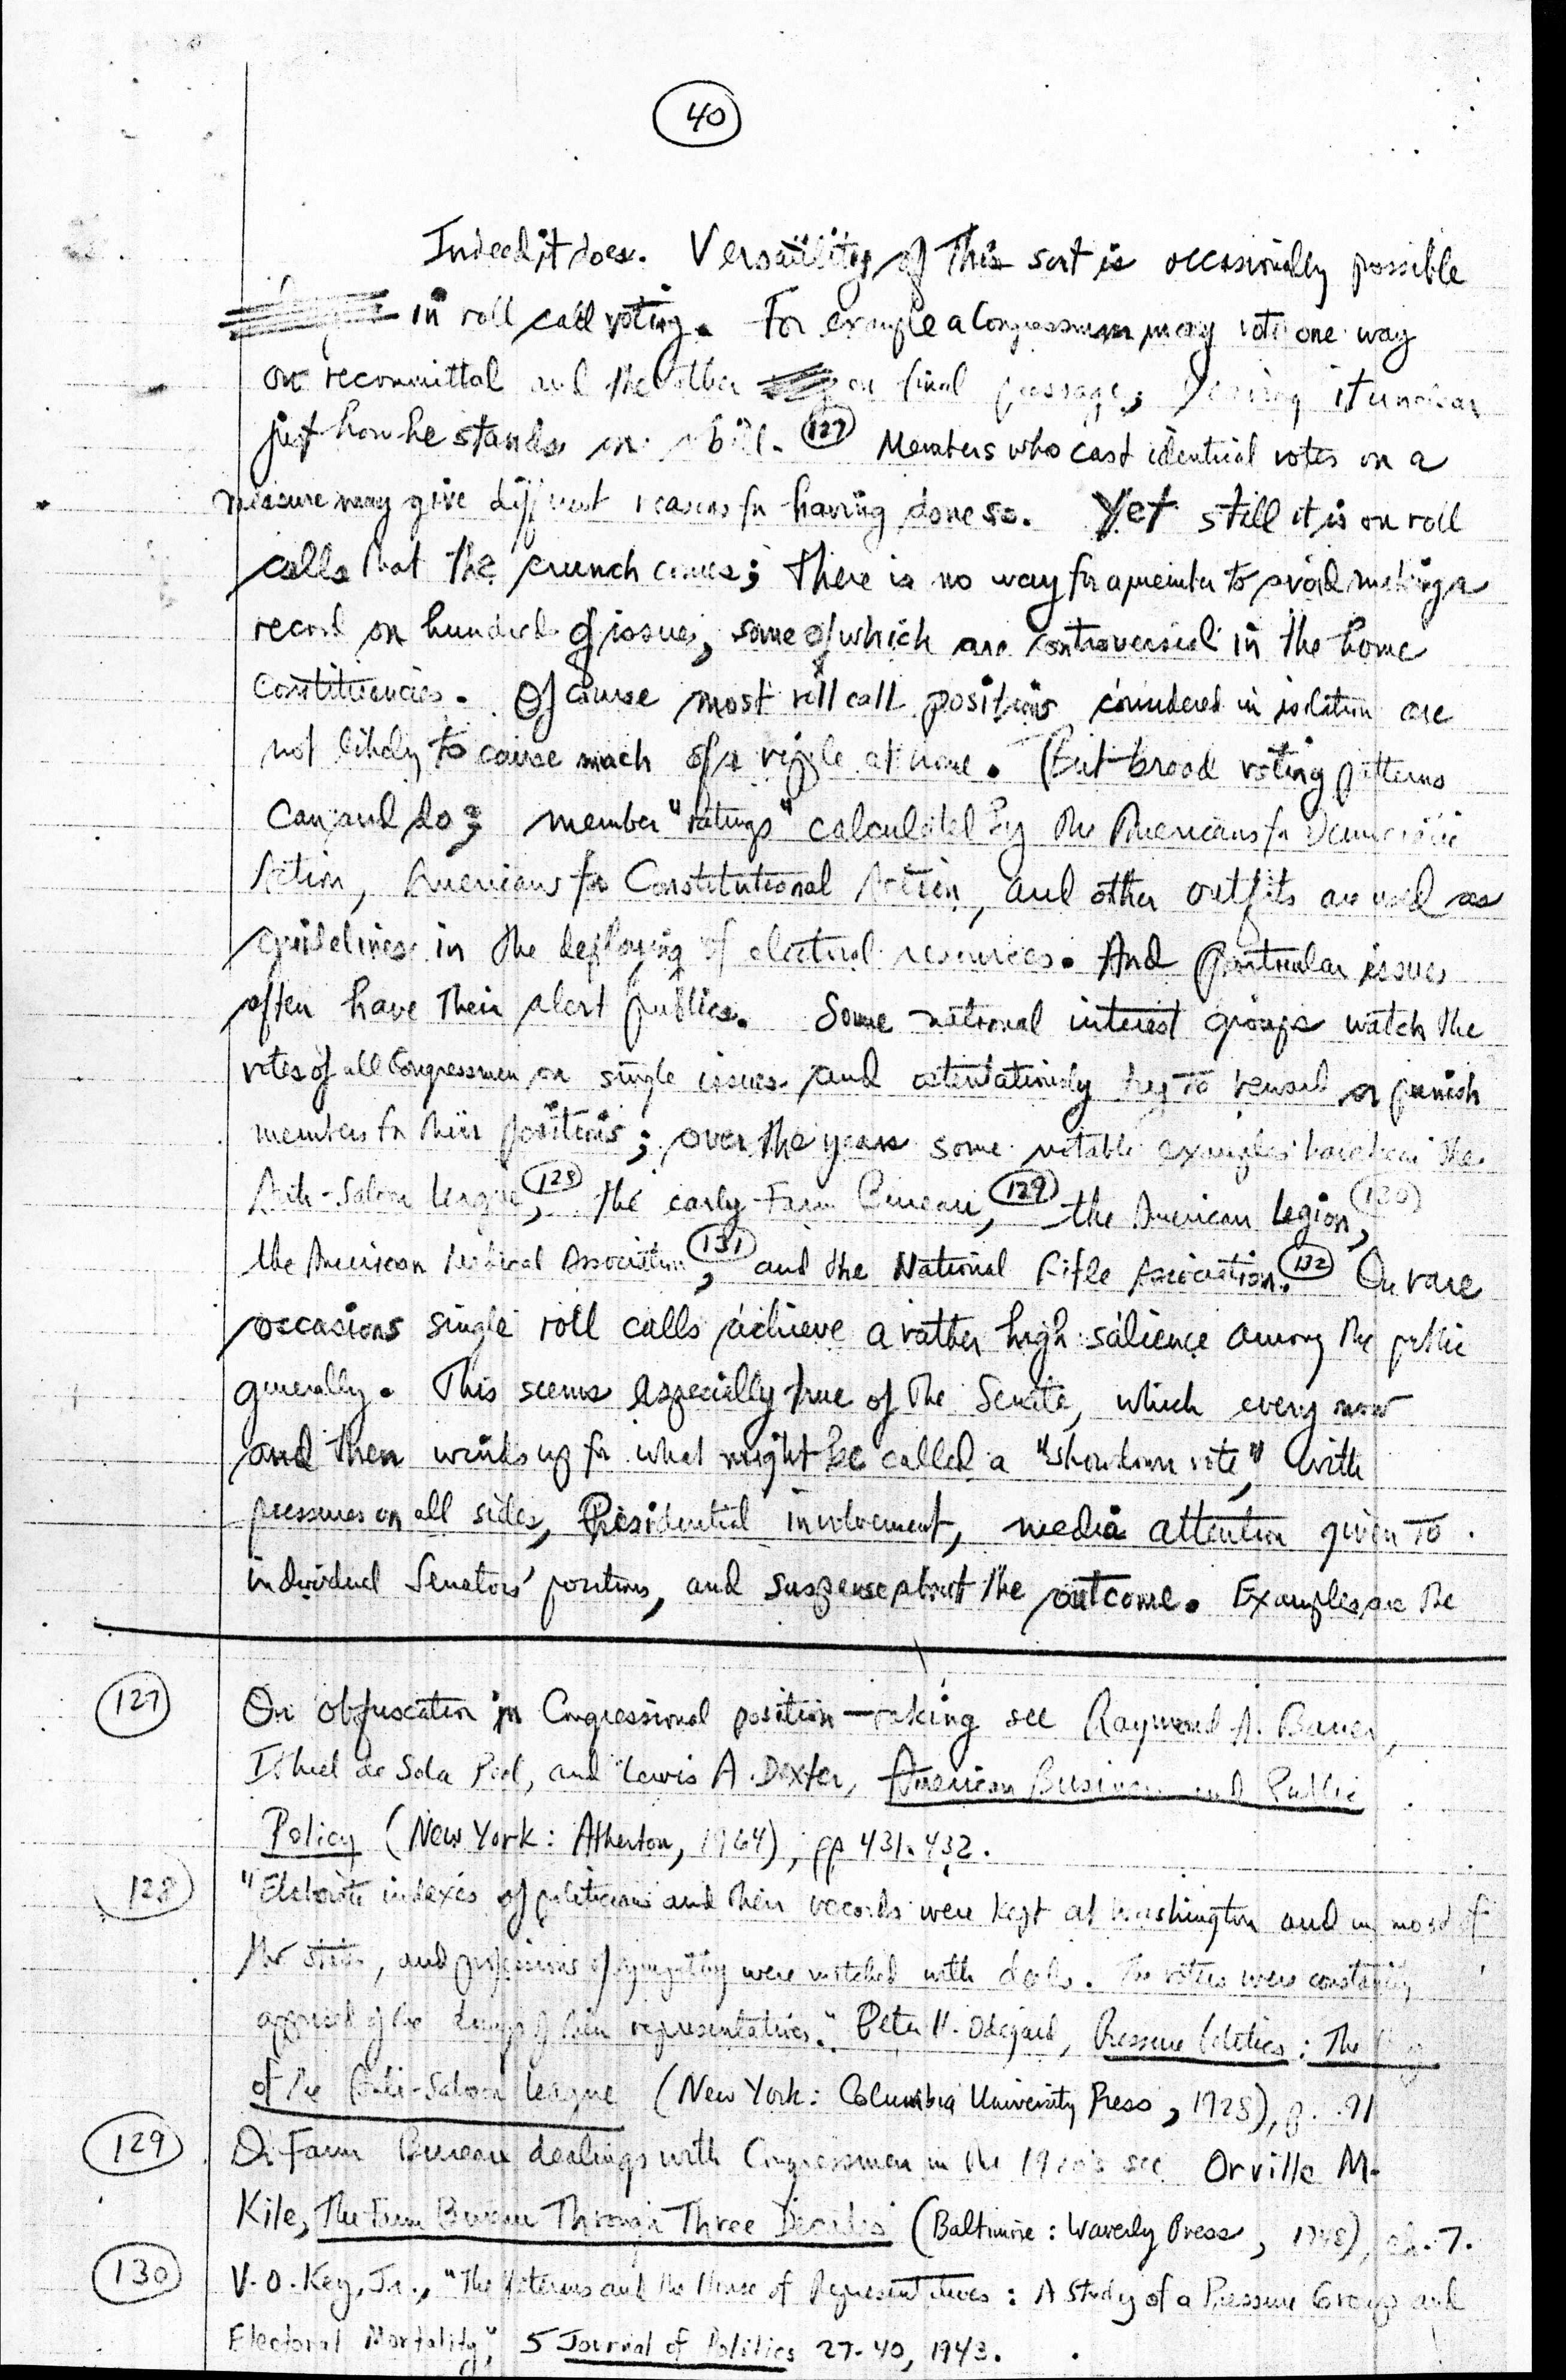 40
Indeed it does. Versatility of this sort is occasionally possible
in roll call voting. For example a Congressman may vote one way
on recommittal and the other on final passage, leaving it unclear
just how he stands on a bill. 127 Members who cast identical votes on a
measure may give different reasons for having done so. Yet still it is on roll
calls that the crunch comes; there is no way for a member to avoid making a
record on hundreds of issues, some of which are controversial in the home
constituencies. Of course most roll call positions considered in isolation are
not likely to cause much of a ripple at home. But broad voting patterns
can and do; member "ratings" calculated by the Americans for Democratic
Action, Americans for Constitutional Action, and other outfits are used as
guidelines in the deploying of electoral resources. And particular issues
often have their alert publics. Some national interest groups watch the
votes of all Congressmen on single issues and ostentatiously try to reward or punish
members for their positions; over the years some notable examples have been the
Anti-Saloon League, 128 the early Farm Bureau, 129 the American Legion, 130
the American Medical Association, 131 and the National Rifle Association. 132 On rare
occasions single roll calls achieve a rather high salience among the public
generally. This seems especially true of the Senate, which every now
and then winds up for what might be called a "showdown vote," with
pressures on all sides, Presidential involvement, media attention given to
individual Senators' positions, and suspense about the outcome. Examples are the
127 On obfuscation in Congressional position-taking see Raymond A. Bauer,
Ithiel de Sola Pool, and Lewis A. Dexter, American Business and Public
Policy (New York: Atherton, 1964), pp 431-432.
128 "Elaborate indexes of politicians and their records were kept at Washington and in most of
the states, and professions of sympathy were matched with deeds. The voters were constantly
apprised of the doings of their representatives." Peter H. Odegard, Pressure Politics: The
of the Anti-Saloon League (New York: Columbia University Press, 1928), p. 21
129 On Farm Bureau dealings with Congressmen in the 1920's see Orville M.
Kile, The Farm Bureau Through Three Decades (Baltimore: Waverly Press, 1948), ch. 7.
130 V. O. Key, Jr., "The Veterans and the House of Representatives: A Study of a Pressure Group and
Electoral Mortality," 5 Journal of Politics 27-40, 1943.